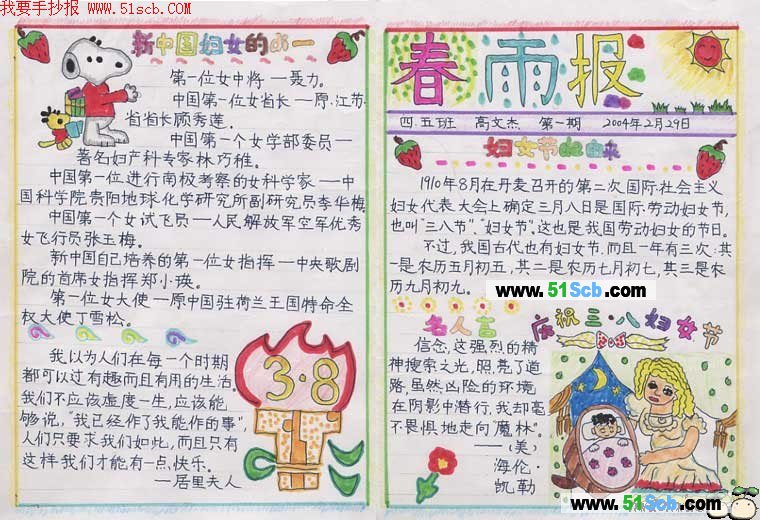 我要手抄报 www.51scb.com
新中国妇女的第一
第一位女中将——聂力。
中国第一位女省长——原·江苏
省省长顾秀莲。
中国第一个女学部委员—
著名妇产科专家林巧稚。
中国第一位进行南极考察的女科学家—中
国科学院贵阳地球化学研究所副研究员李华梅
中国第一个女试飞员——人民解放军空军优秀
女飞行员张玉梅。
新中国自己培养的第一位女指挥—中央歌剧
院的首席女指挥郑小瑛。
第一位女大使—原中国驻荷兰王国特命全
权大使丁雪松。
我以为人们在每一个时期
都可以过有趣而且有用的生活。
我们不应该虚度一生,应该能
够说,“我已经作了我能作的事”,
人们只要求我们如此,而且只有
这样我们才能有一点快乐。
—居里夫人
3·8
春雨报
四.五班 高文杰 第一期 2004年2月29日
妇女节的由来
1910年8月在丹麦召开的第二次国际社会主义
妇女代表大会上确定三月八日是国际劳动妇女节,
也叫“三八节”、“妇女节”。这也是我国劳动妇女的节日。
不过,我国古代也有妇女节,而且一年有三次:其
一是农历五月初五,其二是农历七月初七,其三是农
历九月初九。
www.51Scb.com
名人言
庆祝三·八妇女节
信念,这强烈的精
神搜索之光,照亮了道
路,虽然凶险的环境
在阴影中潜行,我却毫
不畏惧地走向“魔林”。
——(美)
海伦·
凯勒
www.51Scb.com